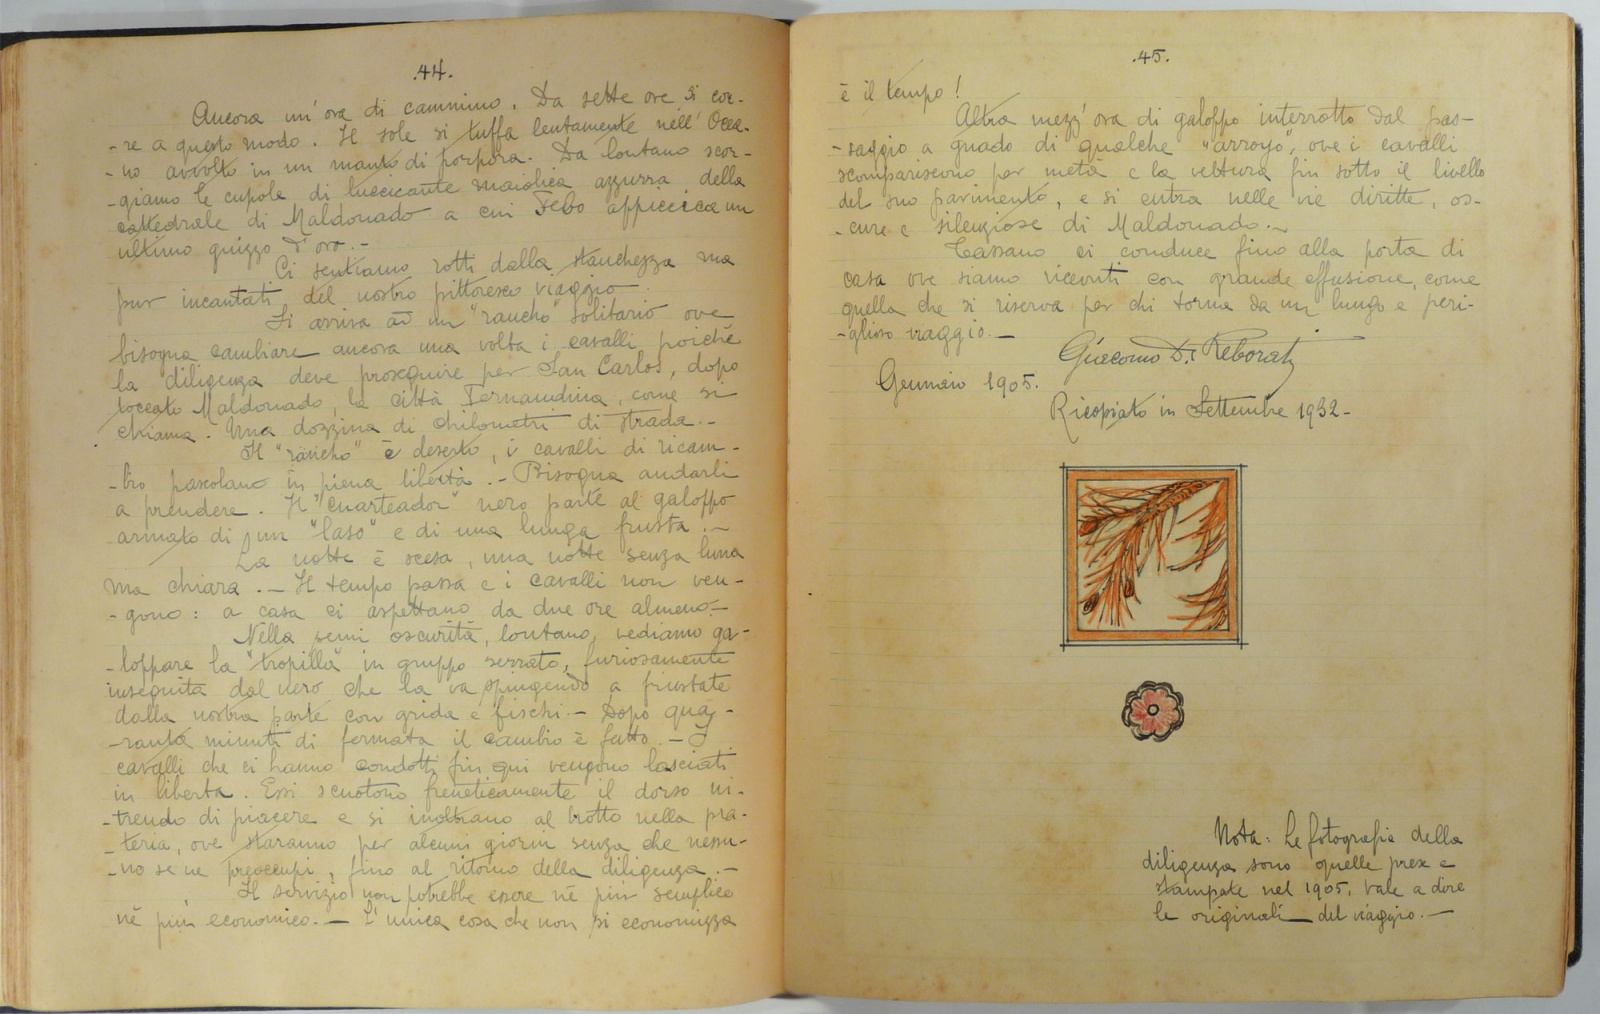 .44.
Ancora un'ora di cammino. Da sette ore si cor-
-re a questo modo. Il sole si tuffa lentamente nell'Occa-
-no avvolto in un manto di porpora. Da lontano scor-
-giamo le cupole di luccicante maiolica azzurra della
cattedrale di Maldonado a cui Febo appiccica un
ultimo guizzo d'oro.-
Ci sentiamo rotti dalla stanchezza ma
pur incantati del nostro pittoresco viaggio.
Si arriva ad un "rancho" solitario ove
bisogna cambiare ancora una volta i cavalli poichè
la diligenza deve proseguire per San Carlos, dopo
toccato Maldonado, la città Fernandina, come si
chiama. Una dozzina di chilometri di strada.-
Il "rancho" è deserto, i cavalli di ricam-
-bio pascolano in piena libertà.- Bisogna andarli
a prendere. Il "cuarteador" nero parte al galoppo
armato di un "laso" e di una lunga frusta.-
La notte è scesa, una notte senza luna
ma chiara.- Il tempo passa e i cavalli non ven-
-gono: a casa ci aspettano da due ore almeno.-
Nella semi oscurità, lontano, vediamo ga-
-loppare la "tropilla" in gruppo serrato, furiosamente
inseguita dal nero che la va spingendo a frustate
dalla nostra parte con grida e fischi.- Dopo qua-
-ranta minuti di fermata il cambio è fatto.- I
cavalli che ci hanno condotti fin qui vengono lasciati
in libertà. Essi scuotono freneticamente il dorso ni-
-trendo di piacere e si inoltrano al trotto nella pra-
-teria, ove staranno per alcuni giorni senza che nessu-
-no se ne preoccupi, fino al ritorno della diligenza.-
Il servizio non potrebbe essere nè più semplice
nè più economico.- L'unica cosa che non si economizza
.45.
è il tempo!
Altra mezz'ora di galoppo interrotto dal pas-
-saggio a guado di qualche "arroyo", ove i cavalli
scompariscono per metà e la vettura fin sotto il livello
del suo pavimento, e si entra nelle vie diritte, os-
-cure e silenziose di Maldonado.-
Cassano ci conduce fino alla porta di
casa ove siamo ricevuti con grande effusione, come
quella che si riserva per chi torna da un lungo e peri-
-glioso viaggio.-
Giacomo D. Reborati
Gennaio 1905.
Ricopiato in Settembre 1932-
Nota: Le fotografie della
diligenza sono quelle prese e
stampate nel 1905, vale a dire
le originali del viaggio.-